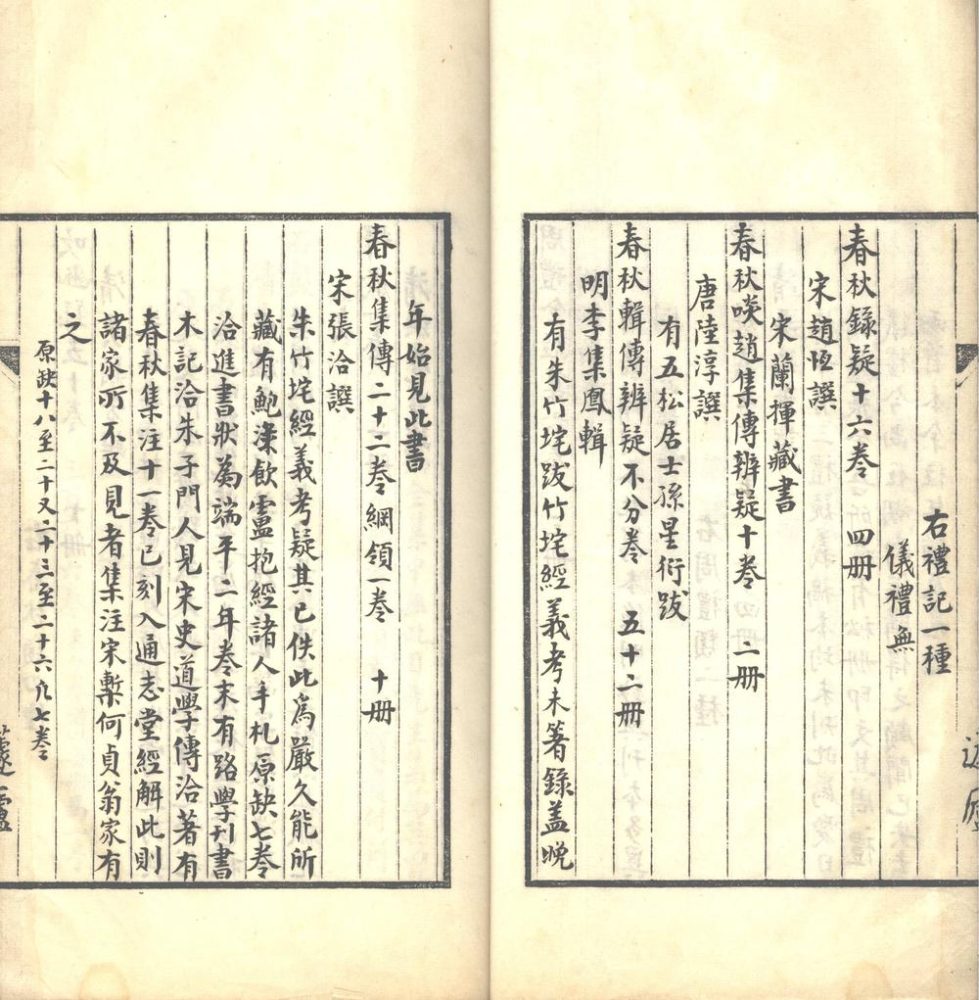 右禮記一種
儀禮無
春秋錄疑十六卷　四册
宋趙恆撰
宋蘭揮藏書
春秋啖趙集傳辨疑十卷　二册
唐陸淳譔
有五松居士孫星衍跋
春秋輯傳辨疑不分卷　五十二册
明李集鳳輯
有朱竹垞跋竹垞經義考未著錄盖晚
年始見此書
春秋集傳二十二卷綱領一卷　十册
宋張洽譔
朱竹垞經義考疑其已佚此爲嚴久能所
藏有鮑淥飲盧抱經諸人手札原缺七卷
洽進書狀為端平二年卷末有路學刊書
木記洽朱子門人見宋史道學傳洽著有
春秋集注十一卷已刻入通志堂經解此則
諸家所不及見者集注宋槧何貞翁家有
之
原缺十八至二十又二十三至二十六凡七卷